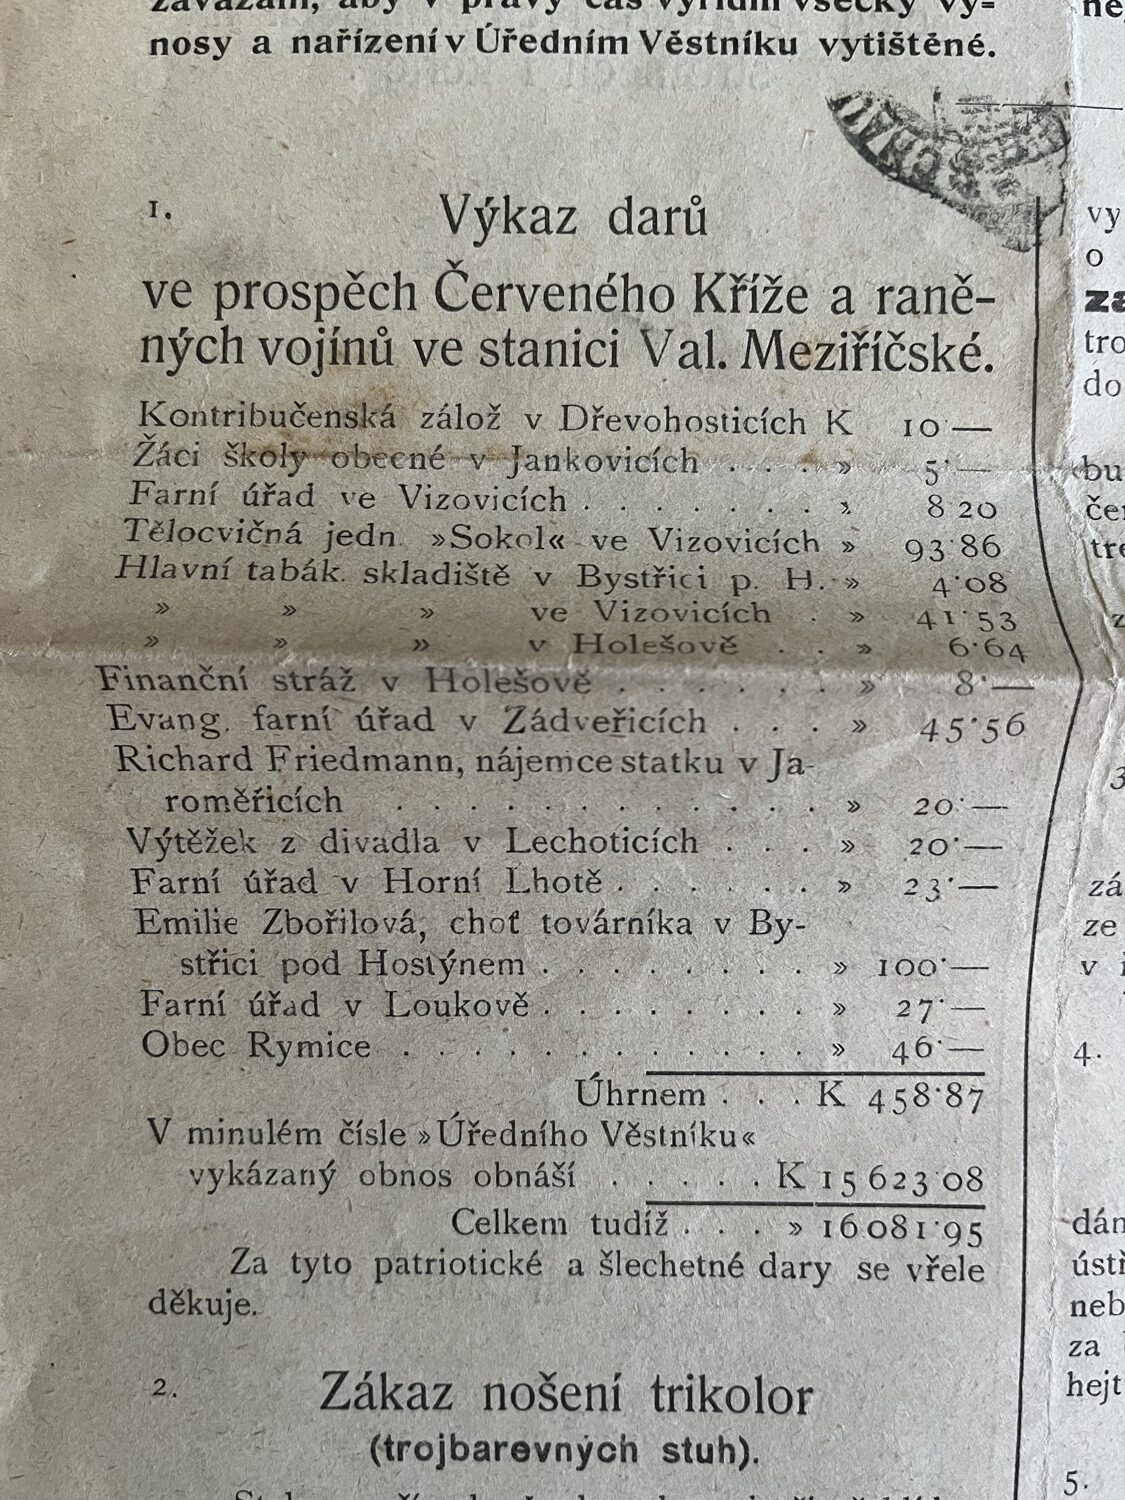 nosy a nařízení v Úředním Věstníku vytištěné.
1.
Výkaz darů
ve prospěch Červeného Kříže a raně-
ných vojínů ve stanici Val. Meziříčské.
Kontribučenská zálož v Dřevohosticích K 10·—
Žáci školy obecné v Jankovicích . . . » 5·—
Farní úřad ve Vizovicích . . . . . . . » 8 20
Tělocvičná jedn. »Sokol« ve Vizovicích » 93·86
Hlavní tabák. skladiště v Bystřici p. H. » 4·08
» » » ve Vizovicích . » 41·53
» » » v Holešově . . » 6·64
Finanční stráž v Holešově . . . . . . » 8·—
Evang. farní úřad v Zádveřicích . . . » 45·56
Richard Friedmann, nájemce statku v Ja-
roměřicích . . . . . . . . . . . . » 20·—
Výtěžek z divadla v Lechoticích . . . » 20·—
Farní úřad v Horní Lhotě . . . . . . » 23·—
Emilie Zbořilová, choť továrníka v By-
střici pod Hostýnem . . . . . . . . » 100·—
Farní úřad v Loukově . . . . . . . . » 27·—
Obec Rymice . . . . . . . . . . . . » 46·—
Úhrnem . . . K 458·87
V minulém čísle »Úředního Věstníku«
vykázaný obnos obnáší . . . . . K 15623·08
Celkem tudíž . . . » 16081·95
Za tyto patriotické a šlechetné dary se vřele
děkuje.
2.
Zákaz nošení trikolor
(trojbarevných stuh).
vy
o
za
tro
do
bu
čer
tre
z
3
zá
ze
v
4.
dán
úst
neb
za
hejt
5.